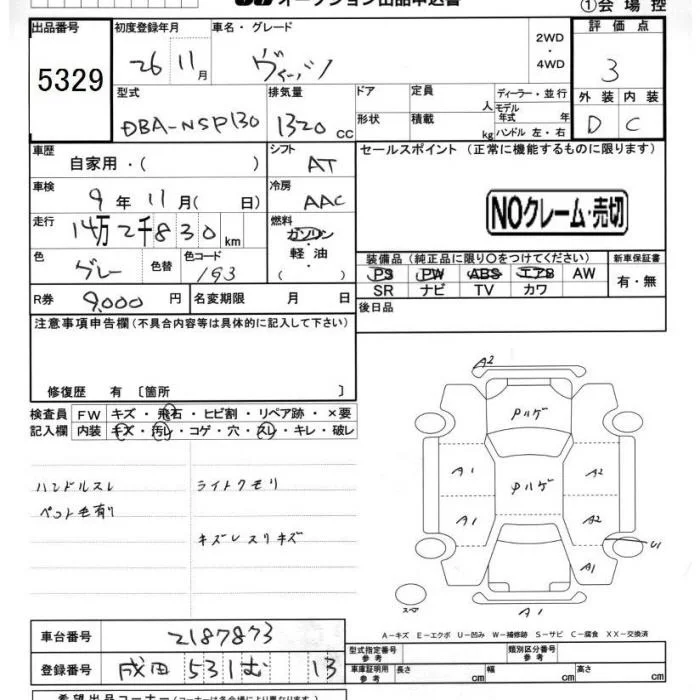 オークション出品申込書
①会場控
出品番号
5329
初度登録年月
26 11月
車名・グレード
ヴィーバノ
2WD
・
4WD
評価点
3
外装 内装
D C
型式
DBA-NSP130
排気量
1320 CC
ドア
形状
定員
人
積載
kg
ディーラー・並行
モデル
年式 年
ハンドル 左・右
車歴
自家用・( )
シフト
AT
車検
9年11月( 日)
冷房
AAC
走行
14万2千830km
燃料
ガソリン
・
軽油
( )
色
グレー
色替
色コード
1G3
R券
9,000円
名変期限 月 日
セールスポイント (正常に機能するものに限ります)
NOクレーム・売切
装備品(純正品に限り〇をつけてください)
新車保証書
PS PW ABS エアB AW
SR ナビ TV カワ
有・無
後日品
注意事項申告欄(不具合内容等は具体的に記入して下さい)
修復歴 有〔箇所 〕
検査員
記入欄
FW キズ・飛石・ヒビ割・リペア跡・×要
内装 キズ・汚レ・コゲ・穴・スレ・キレ・破レ
ハンドルスレ
ペット毛有り
ライトクモリ
キズレスリキズ
A2
Pハゲ
A1
Pハゲ
A2
A1
A2
U1
A1
A1
スペア
A-キズ E-エクボ U-凹み W-補修跡 S-サビ C-腐食 XX-交換済
車台番号
2187873
登録番号
成田 531 む 13
型式指定番号
参考
類別区分番号
参考
車庫証明用
参考
長さ cm
幅 cm
高さ cm
希望出品コーナー